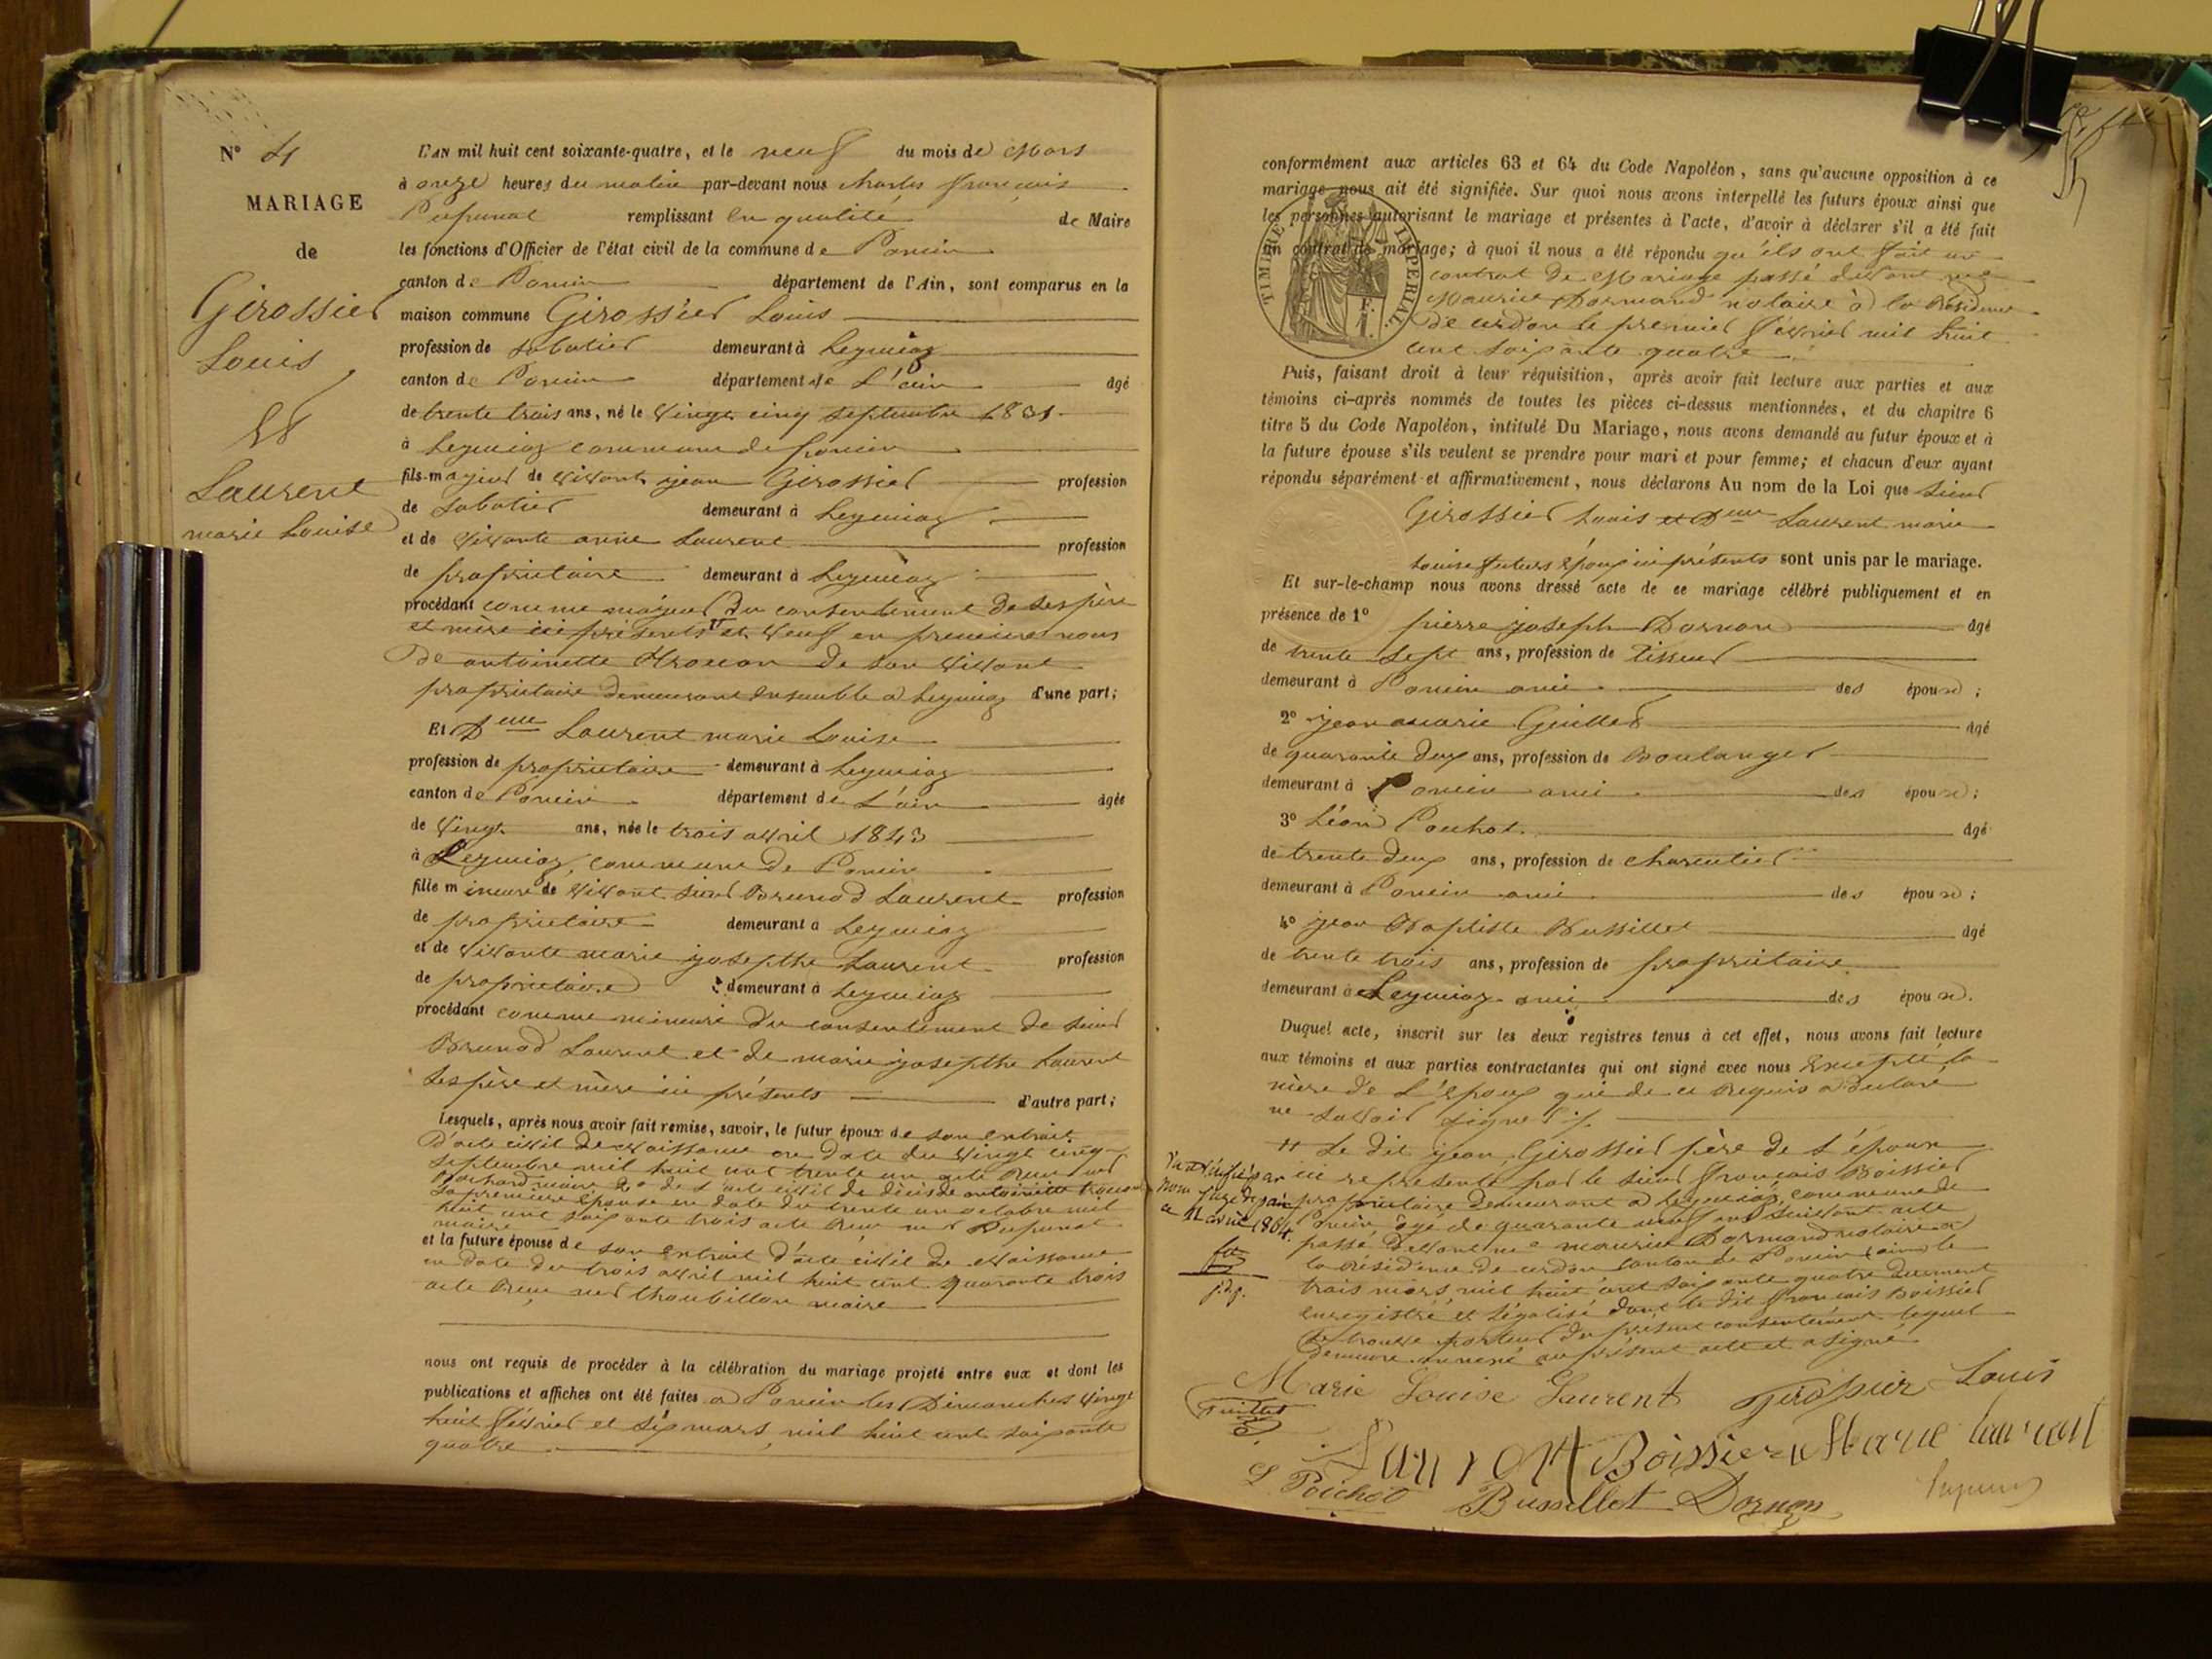 N° 4
MARIAGE
de
Girossier
Louis
Et
Laurent
marie Louise
L'AN mil huit cent soixante-quatre, et le neuf du mois de Mars
à onze heures du matin par-devant nous Charles françois
remplissant En qualité de Maire
les fonctions d'Officier de l'état civil de la commune de Poncin
canton de Poncin département de l'Ain, sont comparus en la
maison commune Girossier Louis
profession de Sabotier demeurant à Leymiaz
canton de Poncin département de L'ain âgé
de trente trois ans, né le Vingt cinq septembre 1831
à Leymiaz commune de poncin
fils majeur de vivant jean Girossier profession
de Sabotier demeurant à Leymiaz
et de vivante anne Laurent profession
de propriétaire demeurant à Leymiaz
procédant comme majeur du consentement de ses père
et mère ici présents et veuf en premiere noces
De antoinette de son vivant
propriétaire demeurant ensemble a Leymiaz d'une part;
Et Delle Laurent marie Louise
profession de propriétaire demeurant à Leymiaz
canton de Poncin département de L'ain âgée
de Vingt ans, née le trois avril 1843
à Leymiaz, commune de Poncin
fille mineure de vivant sieur Brunod Laurent profession
de propriétaire demeurant a Leymiaz
et de vivante marie josepthe Laurent profession
de propriétaire demeurant à Leymiaz
procédant comme mineure du consentement de sieur
Brunod Laurent et de marie josepthe Laurent
ses père et mère ici présents d'autre part;
Lesquels, après nous avoir fait remise, savoir, le futur époux de son extrait
D'acte civil de Naissance en date du Vingt cinq
septembre mil huit cent trente un acte Reçu mr
maire 2° de L'acte civil de décès de antoinette
sa premiere épouse en date du trente un octobre mil
huit cent soixante trois acte Reçu mr
maire
et la future épouse de son extrait d'acte civil de Naissance
en date du trois avril mil huit cent quarante trois
acte Reçu mr Choubillon maire
nous ont requis de procéder à la célébration du mariage projeté entre eux et dont les
publications et affiches ont été faites a Poncin les Dimanches Vingt
huit février et six mars, mil huit cent soixante
quatre
conformément aux articles 63 et 64 du Code Napoléon, sans qu'aucune opposition à ce
mariage nous ait été signifiée. Sur quoi nous avons interpellé les futurs époux ainsi que
les personnes autorisant le mariage et présentes à l'acte, d'avoir à déclarer s'il a été fait
un contrat de mariage; à quoi il nous a été répondu qu'ils ont fait un
contrat de Mariage passé devant me
Maurice Dormand notaire à la Résidence
de cerdon le premier février mil huit
cent soixante quatre
TIMBRE IMPERIAL
Puis, faisant droit à leur réquisition, après avoir fait lecture aux parties et aux
témoins ci-après nommés de toutes les pièces ci-dessus mentionnées, et du chapitre 6
titre 5 du Code Napoléon, intitulé Du Mariage, nous avons demandé au futur époux et à
la future épouse s'ils veulent se prendre pour mari et pour femme; et chacun d'eux ayant
répondu séparément et affirmativement, nous déclarons Au nom de la Loi que sieur
Girossier Louis et Delle Laurent marie
Louise futurs époux ici présents sont unis par le mariage.
Et sur-le-champ nous avons dressé acte de ce mariage célébré publiquement et en
présence de 1° pierre joseph Dornon âgé
de trente sept ans, profession de Tisseur
demeurant à Poncin ami des époux;
2° jean marie Guillet âgé
de quarante deux ans, profession de Boulanger
demeurant à Poncin ami des époux;
3° Léon Pouchot âgé
de trente deux ans, profession de charcutier
demeurant à Poncin ami des époux;
4° jean Baptiste Bussillet âgé
de trente trois ans, profession de propriétaire
demeurant à Leymiaz ami des époux.
Duquel acte, inscrit sur les deux registres tenus à cet effet, nous avons fait lecture
aux témoins et aux parties contractantes qui ont signé avec nous Excepté la
mère de L'époux qui de ce Requis a déclaré
ne savoir signer
Le dit jean Girossier père de L'époux
ici représenté par le sieur françois Boissier
propriétaire demeurant a Leymiaz, commune de
Poncin âgé de quarante neuf ans suivant acte
passé devant me maurice Dormand notaire a
la résidence de cerdon canton de Poncin (ain) le
trois mars mil huit cent soixante quatre dument
enregistré et légalisé dont le dit françois Boissier
se trouve porteur du présent consentement lequel
demeure annexé au présent acte et a signé
Vu et vérifié par
nous juge de paix
a 11 avril 1864.
j.d.p.
Marie Louise Laurent Girossier Louis
Guillet
Laurent Boissier Marie Laurent
L. Pouchot Bussillet Dornon